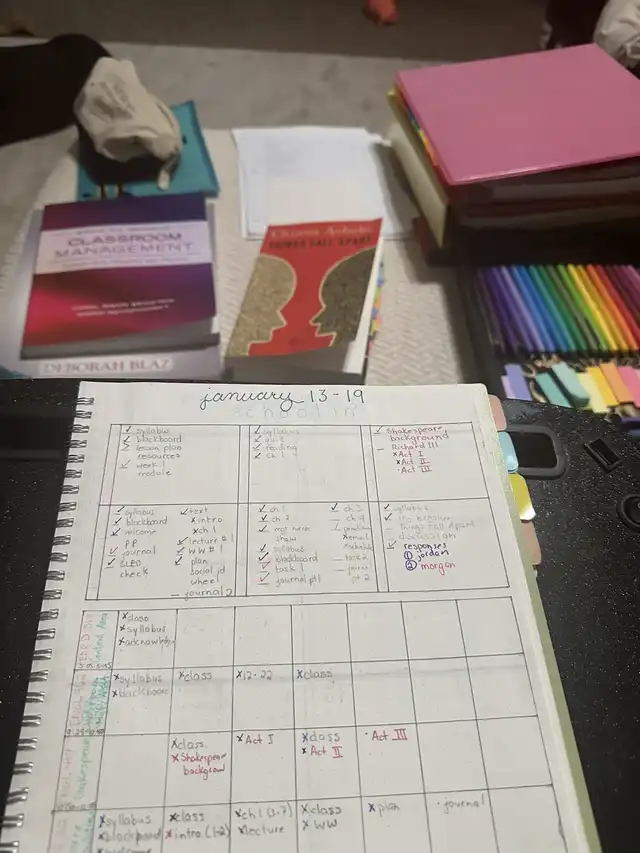 CLASSROOM
MANAGEMENT
DEBORAH BLAZ
Chinua Achebe
THINGS FALL APART
january 13-19
school in
syllabus
blackboard
lesson plan
resources
week 1
module
syllabus
quiz
reading
ch 1
Shakespeare
background
Richard III
x Act I
x Act II
· Act III
syllabus
blackboard
welcome
PP
journal
check
text
x intro
x ch 1
lecture #1
WW #1
plan
social id
wheel
journal 2
ch 1
ch 2
show
syllabus
blackboard
task 1
journal pt 1
ch 3
ch 4
x email
journal
pt 2
syllabus
Things Fall Apart
discussion
responses
① jordan
② morgan
x class
x syllabus
x acknowledg
x syllabus
x blackboard
x class
x 12-22
x class
Shakespeare
x class
x Shakespeare
background
x Act I
x class
x Act II
· Act III
x syllabus
x blackboard
x welcome
x class
x intro (1-2)
x ch 1 (3-7)
x lecture
x class
x WW
x plan
· journal